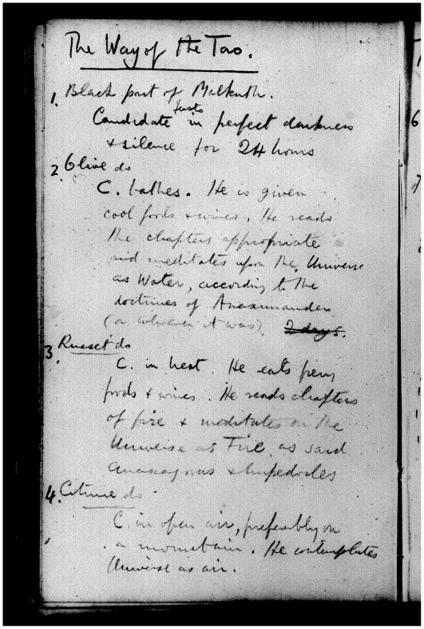 The Way of the Tao.
1. Black part of Malkuth.
fasts
Candidate in perfect darkness
+ silence for 24 hours
2. Olive do
C. bathes. He is given
cool foods + wines. He reads
the chapters appropriate
and meditates upon the Universe
as Water, according to the
doctrines of Anaximander
(or whoever it was). 2 days.
3. Russet do
C. in heat. He eats fiery
foods + wines. He reads chapters
of fire + meditates on the
Universe as Fire, as said
Anaxagoras + Empedocles
4. Citrine do
C. in open air, preferably on
a mountain. He contemplates
Universe as air.
6
7